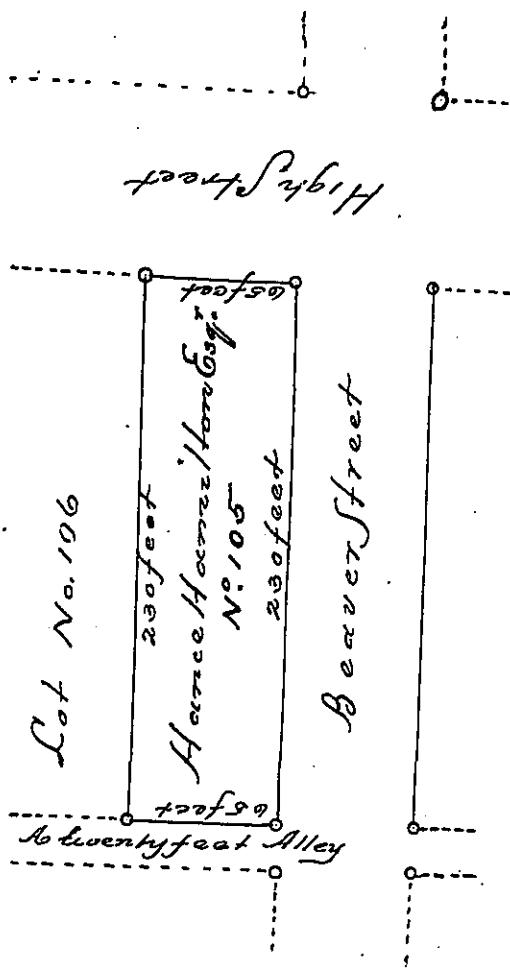 High Street
65 feet
Lot No. 106
230 feet
Hance Hamilton Esqr.
No. 105
230 feet
Beaver Street
65 feet
A twenty feet Alley